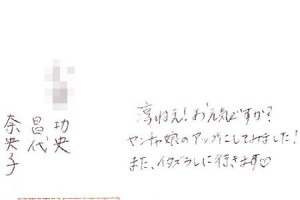 淳ねえ！お元気ですか？
ヤンチャ娘のアップにしてみました！
また、イタズラしに行きます♡
功央
昌代
奈央子